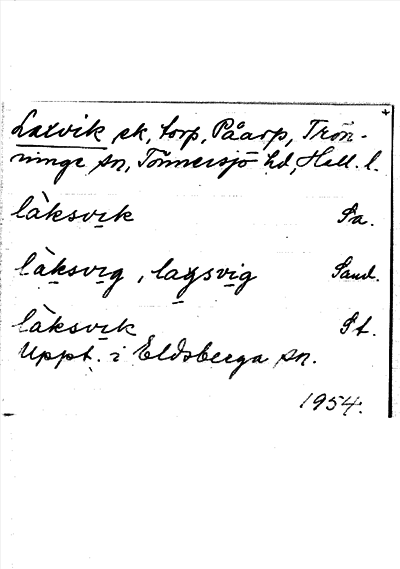 Laxvik ek, torp, Påarp, Trön-
ninge sn, Tönnersjö hd, Hall. l.
làksvi̱k Sa.
là̱ksvi̱g, lagsvi̱g Sand.
làksvi̱k St.
Uppt. i Eldsberga sn.
1954.